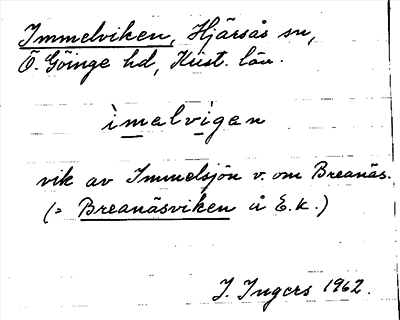 Immelviken, Hjärsås sn,
Ö. Göinge hd, Krist. län.
imelvigen
vik av Immelsjön v. om Breanäs.
(= Breanäsviken å E.k.)
I. Ingers 1962.